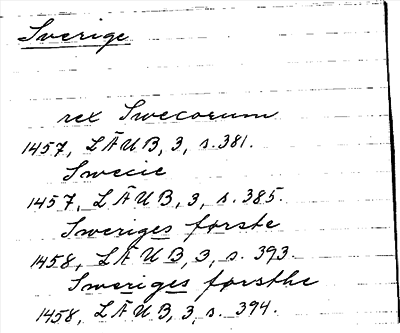 Sverige
rex Swecorum
1457, LÄUB, 3, s. 381.
Swecie
1457, LÄUB, 3, s. 385.
Sweriges første
1458, LÄUB, 3, s. 393.
Swerigesførsthe
1458, LÄUB, 3, s. 394.